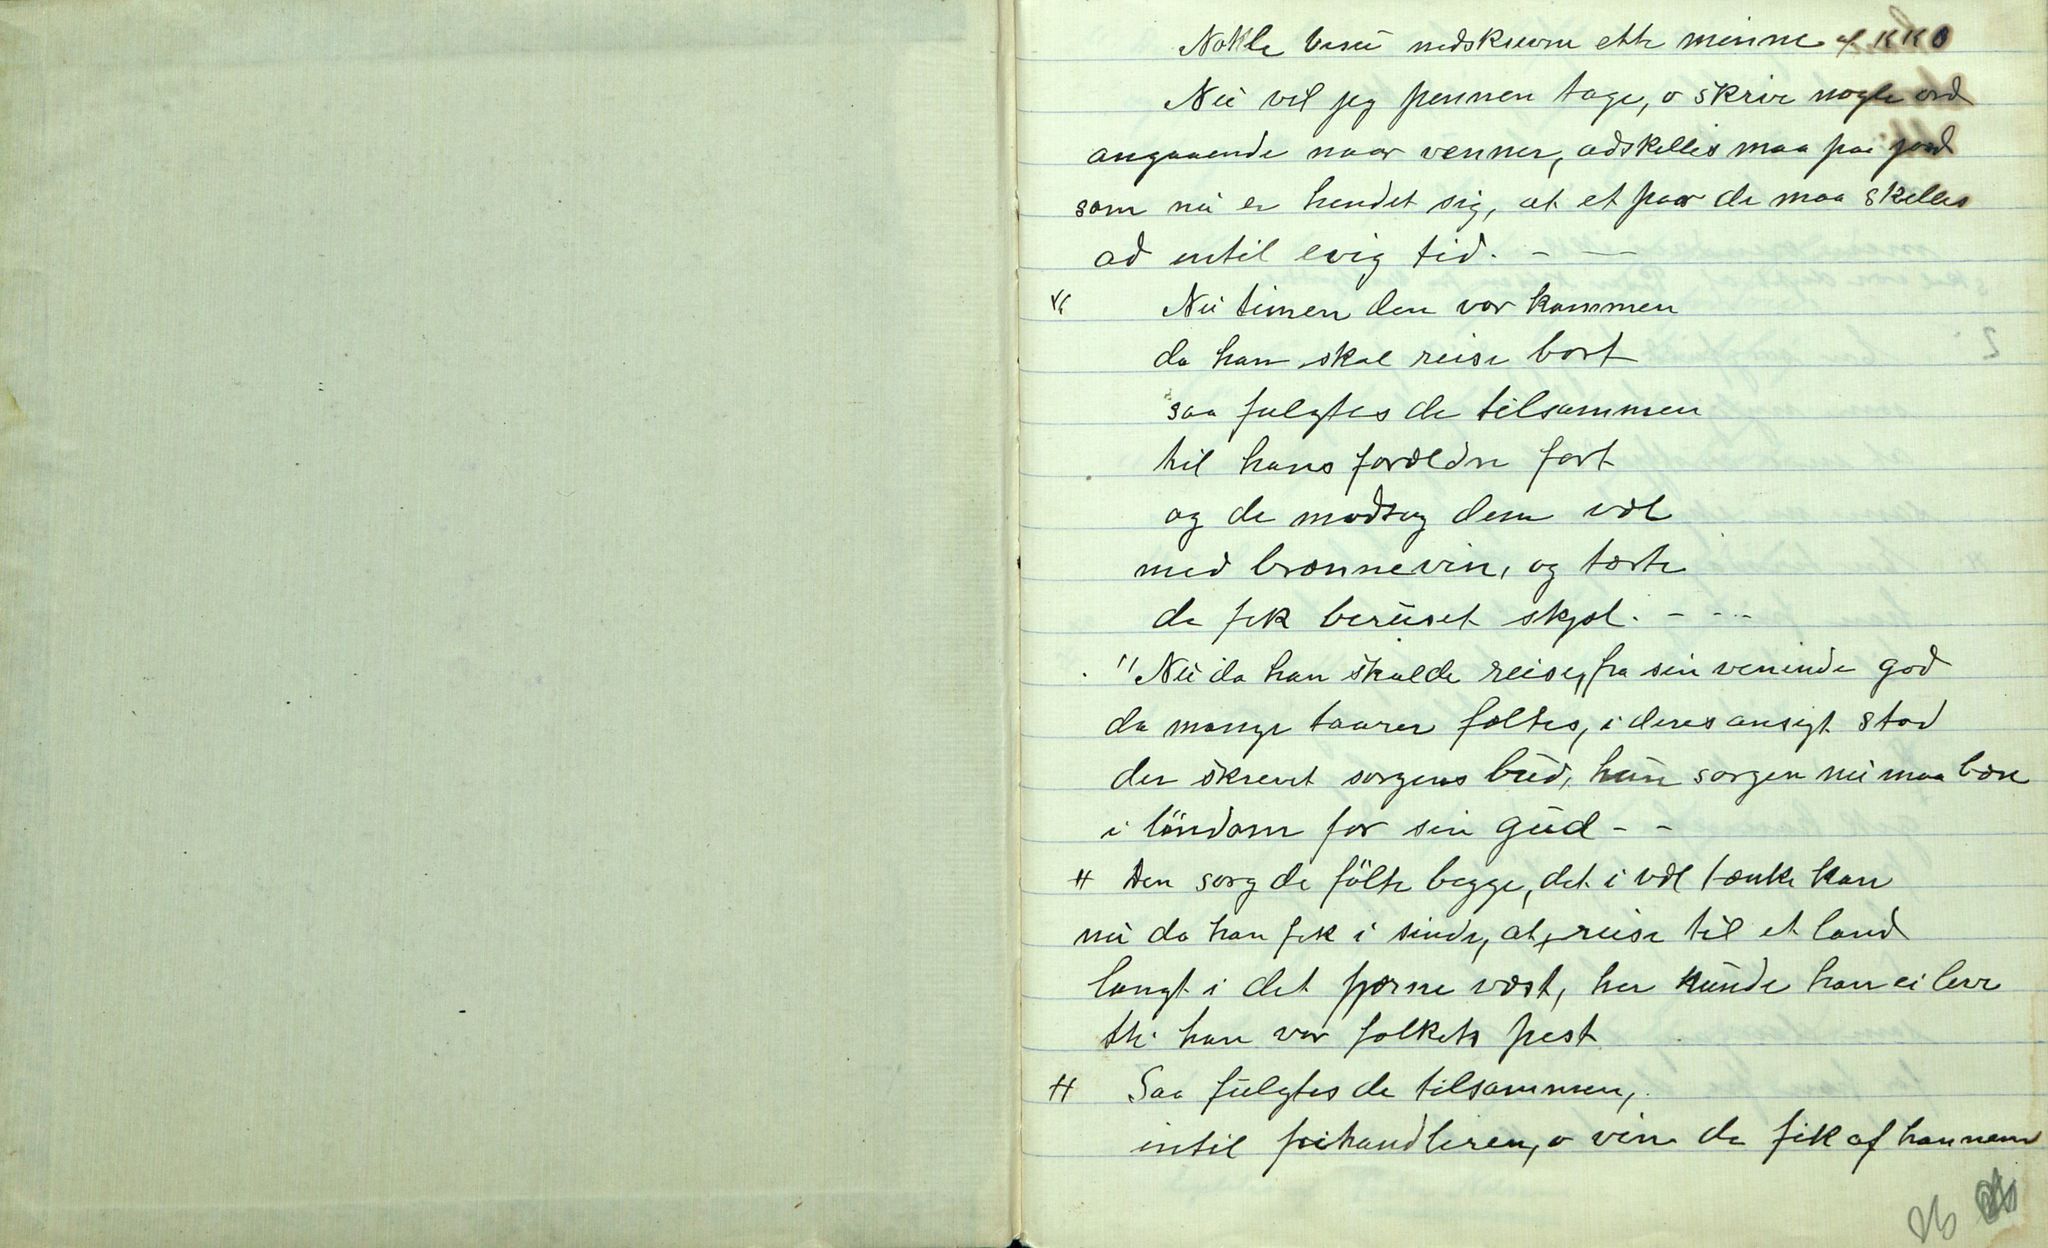 Nokle visu nedskreven ette minne af KKO
Nu vil jeg pennen tage, o skrive nogle ord
angaaende naar venner, adskelles maa paa jord
som nu er hendet sig, at et paar de maa skelles
ad intil evig tid. - —
" Nu timen den var kommen
da han skal reise bort
saa fulgtes de tilsammen
til hans foræeldre fort
og de modtog dem væl
med brænnevin, og tærte
de fik beruset skjæl. - - -
" Nu da han skulde reise, fra sin veninde god
da mange taarer fæltes, i deres ansigt stod
der skrevet sorgens bud, hun sorgen nu maa bære
i löndom for sin gud - -
" Den sorg de fölte begge, det i væl tænke kan
nu da han fik i sinde, at reise til et land
langt i det fjærne væst, her kunde han ei leve
thi han var folkets pest
" Saa fulgtes de tilsammen,
intil handleren, o vin de fik af hannem